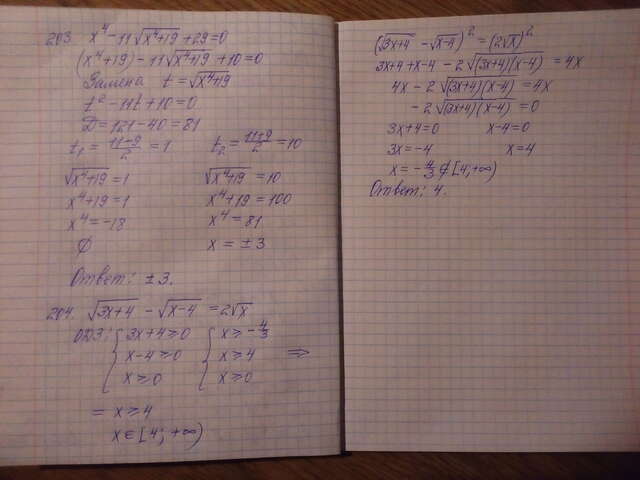 203. x⁴ - 11√(x⁴+19) + 29 = 0
(x⁴+19) - 11√(x⁴+19) + 10 = 0
Замена t = √(x⁴+19)
t² - 11t + 10 = 0
D = 121 - 40 = 81
t₁ = (11-9)/2 = 1 t₂ = (11+9)/2 = 10
√(x⁴+19) = 1 √(x⁴+19) = 10
x⁴+19 = 1 x⁴+19 = 100
x⁴ = -18 x⁴ = 81
∅ x = ±3
Ответ: ±3.
204. √(3x+4) - √(x-4) = 2√x
ОДЗ: { 3x+4 ≥ 0 { x ≥ -4/3
x-4 ≥ 0 x ≥ 4 ⇒
x ≥ 0 x ≥ 0
= x ≥ 4
x ∈ [4; +∞)
(√(3x+4) - √(x-4))² = (2√x)²
3x+4+x-4 - 2√((3x+4)(x-4)) = 4x
4x - 2√((3x+4)(x-4)) = 4x
-2√((3x+4)(x-4)) = 0
3x+4 = 0 x-4 = 0
3x = -4 x = 4
x = -4/3 ∉ [4; +∞)
Ответ: 4.